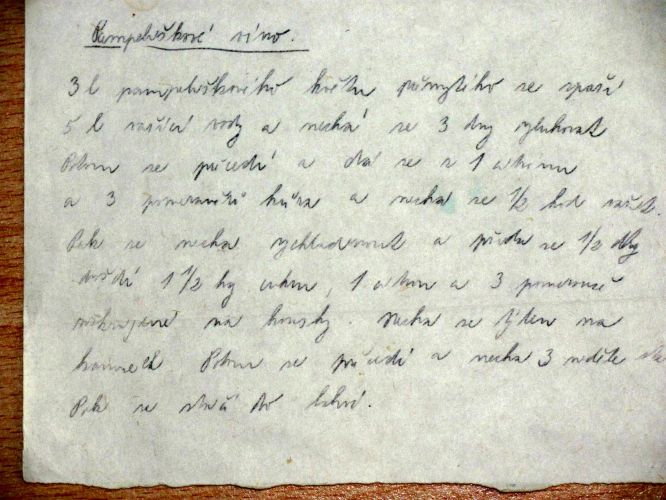 Pampeliškové víno.
3 l pampeliškového květu přemytého se spaří
5 l vařící vody a nechá se 3 dny vyluhovat
Potom se přecedí a dá se z 1 citronu
a 3 pomerančů kůra a nechá se 1/2 hod vařit.
Pak se nechá vychladnout a přidá se 1/2 dkg
droždí 1 1/2 kg cukru, 1 citron a 3 pomeranče
nakrájené na kousky. Nechá se týden na
kamnech Potom se přecedí a nechá 3 neděle
Pak se stočí do lahví.